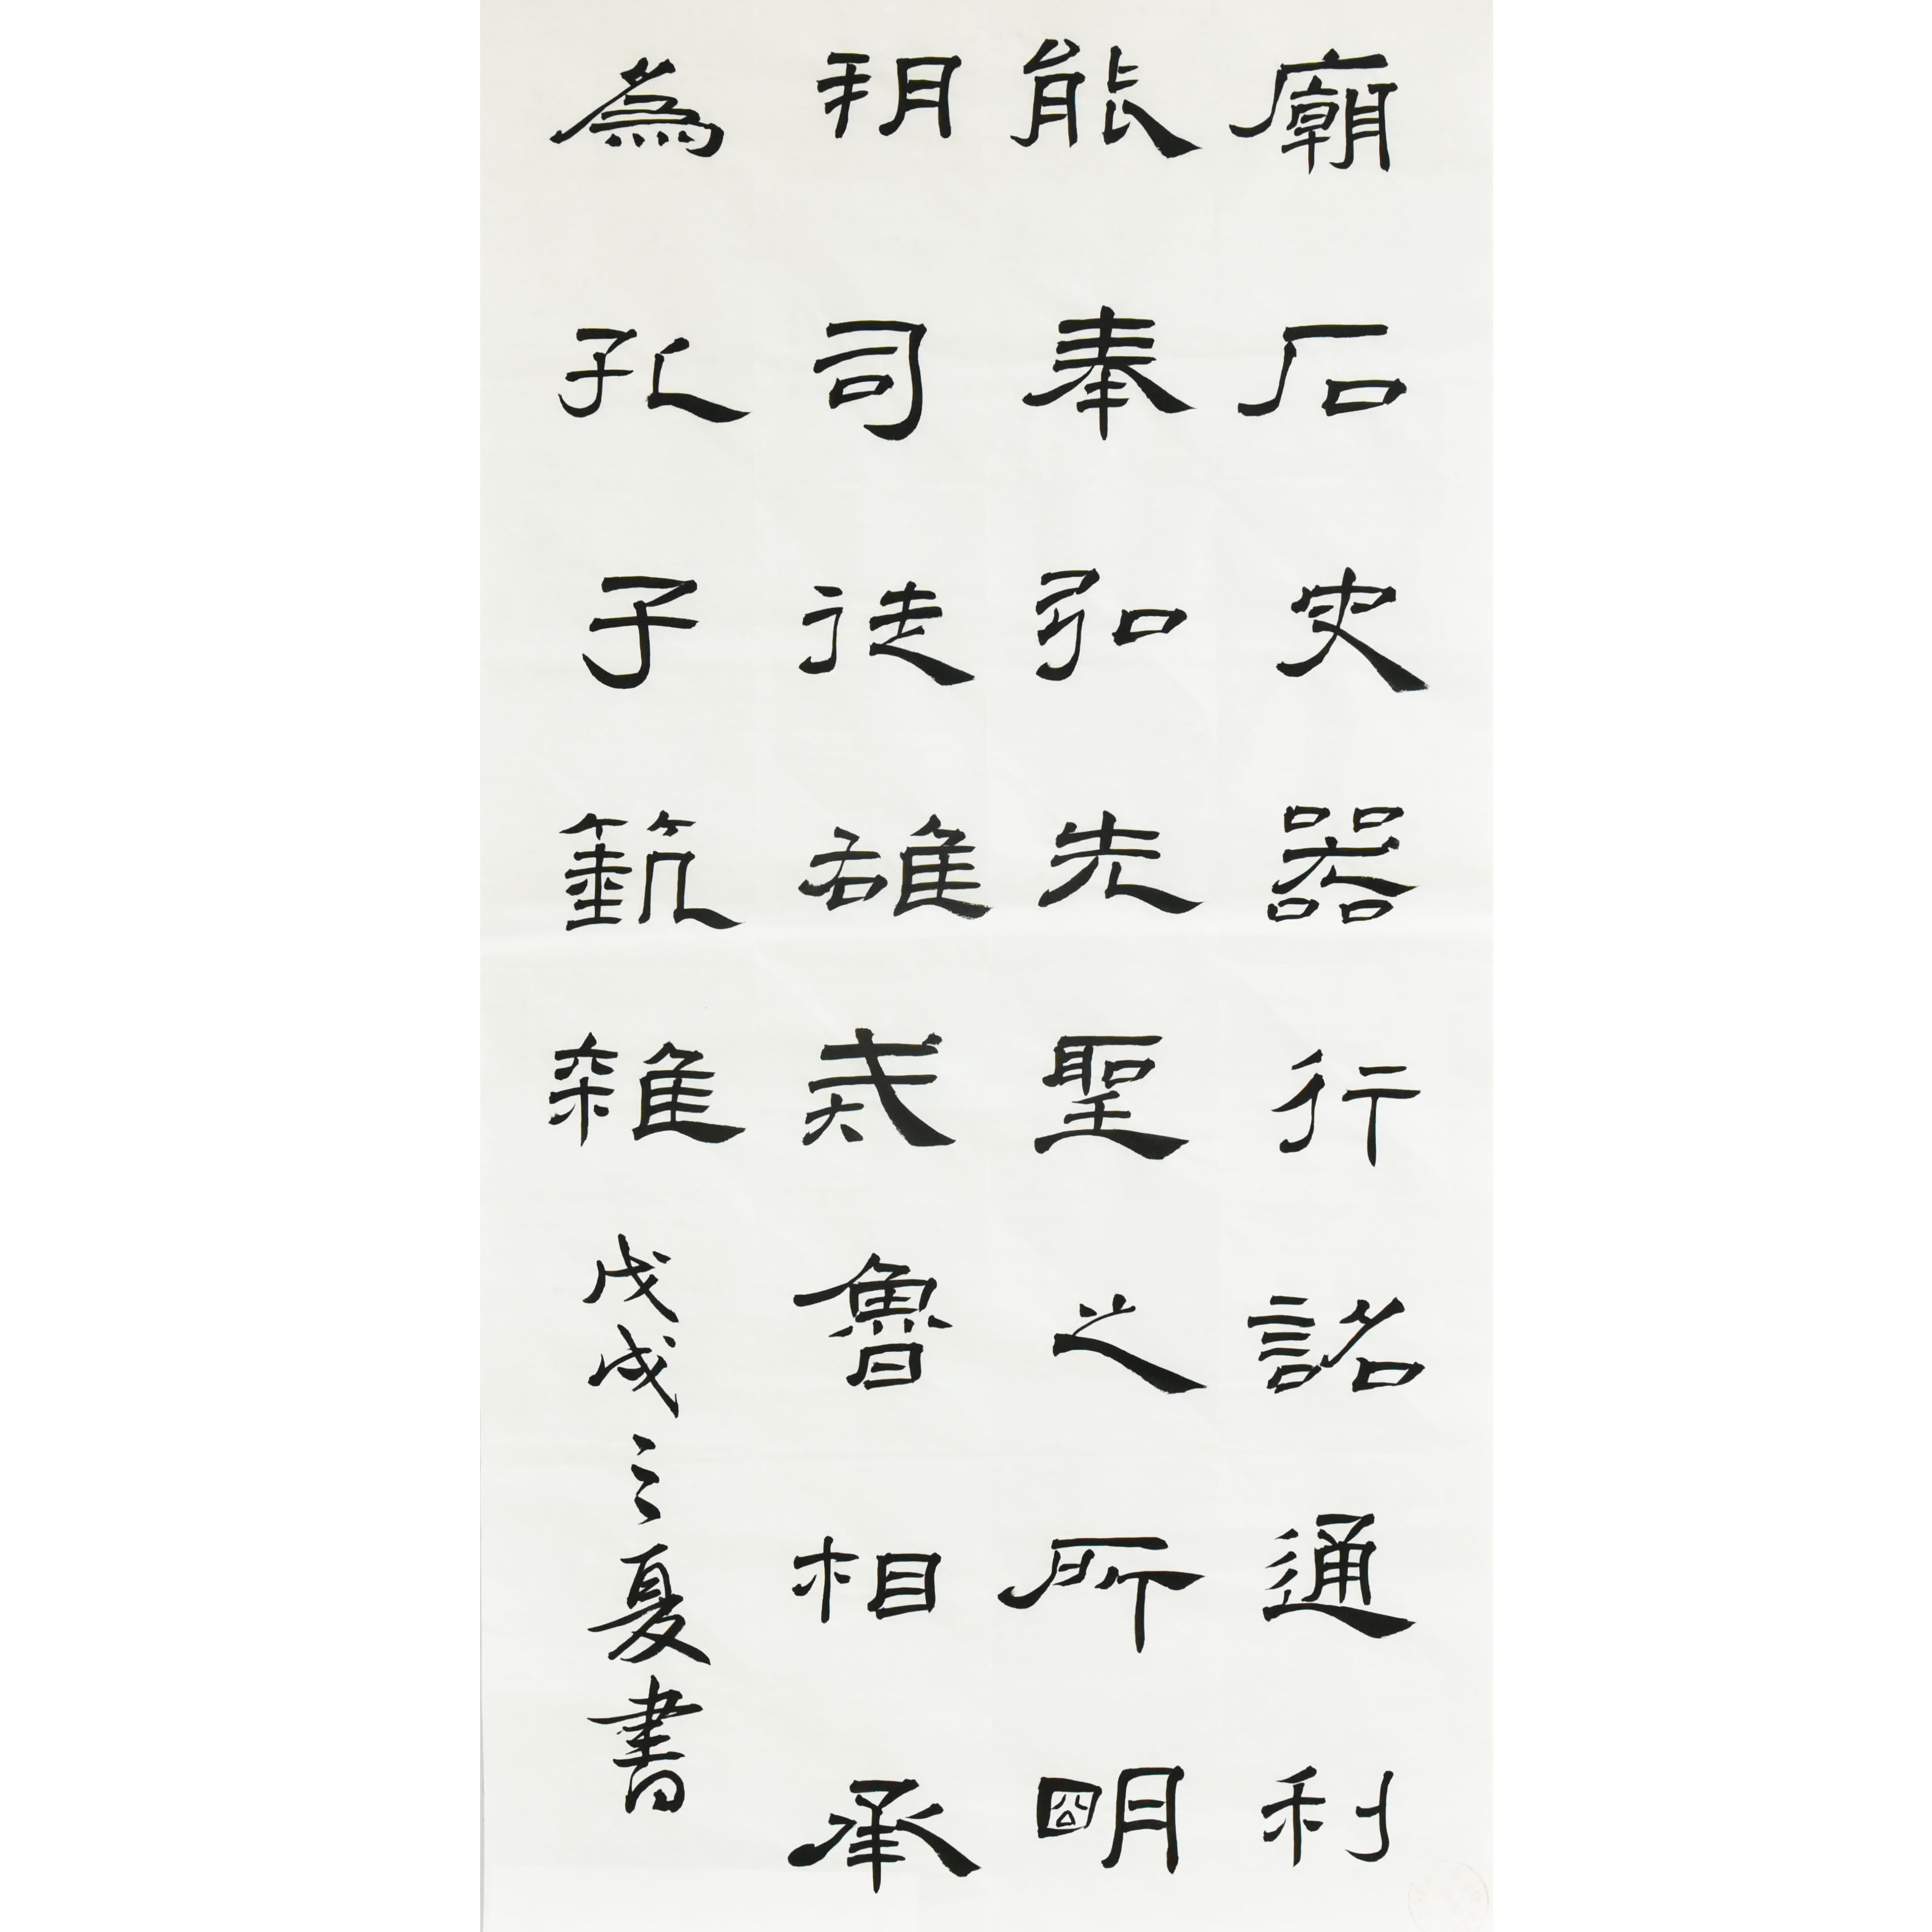 廟石史器行詺通利
能奉弘先聖之所明
玥司徒雄式魯相承
為孔子藝雜戊戌之夏書